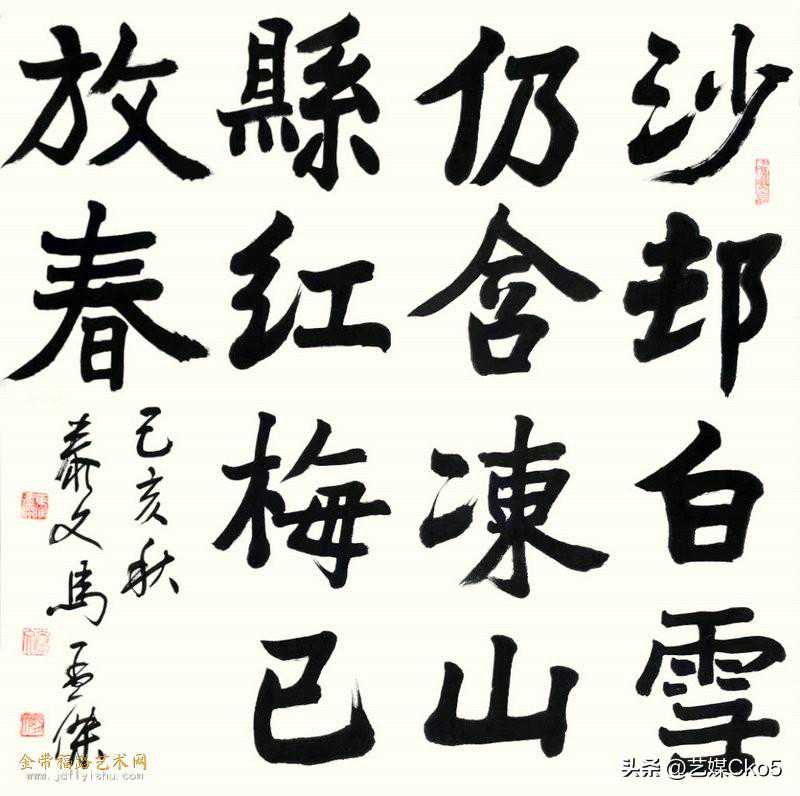 沙邨白雪
仍含凍山
縣紅梅已
放春
己亥秋
文馬孟傑
金带福路艺术网
www.jdflyishu.com
头条 @艺媒Cko5